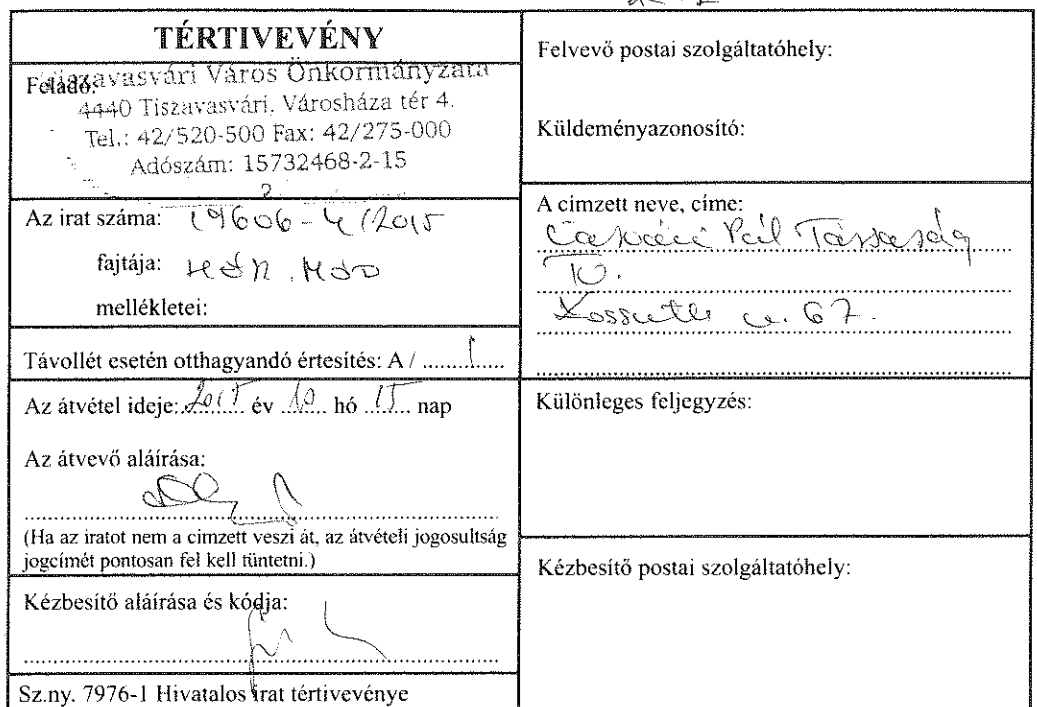 TÉRTIVEVÉNY
Feladó:
Tiszavasvári Város Önkormányzata
4440 Tiszavasvári, Városháza tér 4.
Tel.: 42/520-500 Fax: 42/275-000
Adószám: 15732468-2-15
2
Az irat száma: 19606-4/2015
fajtája:
mellékletei:
Távollét esetén otthagyandó értesítés: A / ..............
Az átvétel ideje: 2015 év 10 hó 15 nap
Az átvevő aláírása:
(Ha az iratot nem a cimzett veszi át, az átvételi jogosultság
jogcímét pontosan fel kell tüntetni.)
Kézbesítő aláírása és kódja:
Sz.ny. 7976-1 Hivatalos irat tértivevénye
Felvevő postai szolgáltatóhely:
Küldeményazonosító:
A cimzett neve, címe:
Pál Társaság
Kossuth u. 67.
Különleges feljegyzés:
Kézbesítő postai szolgáltatóhely: